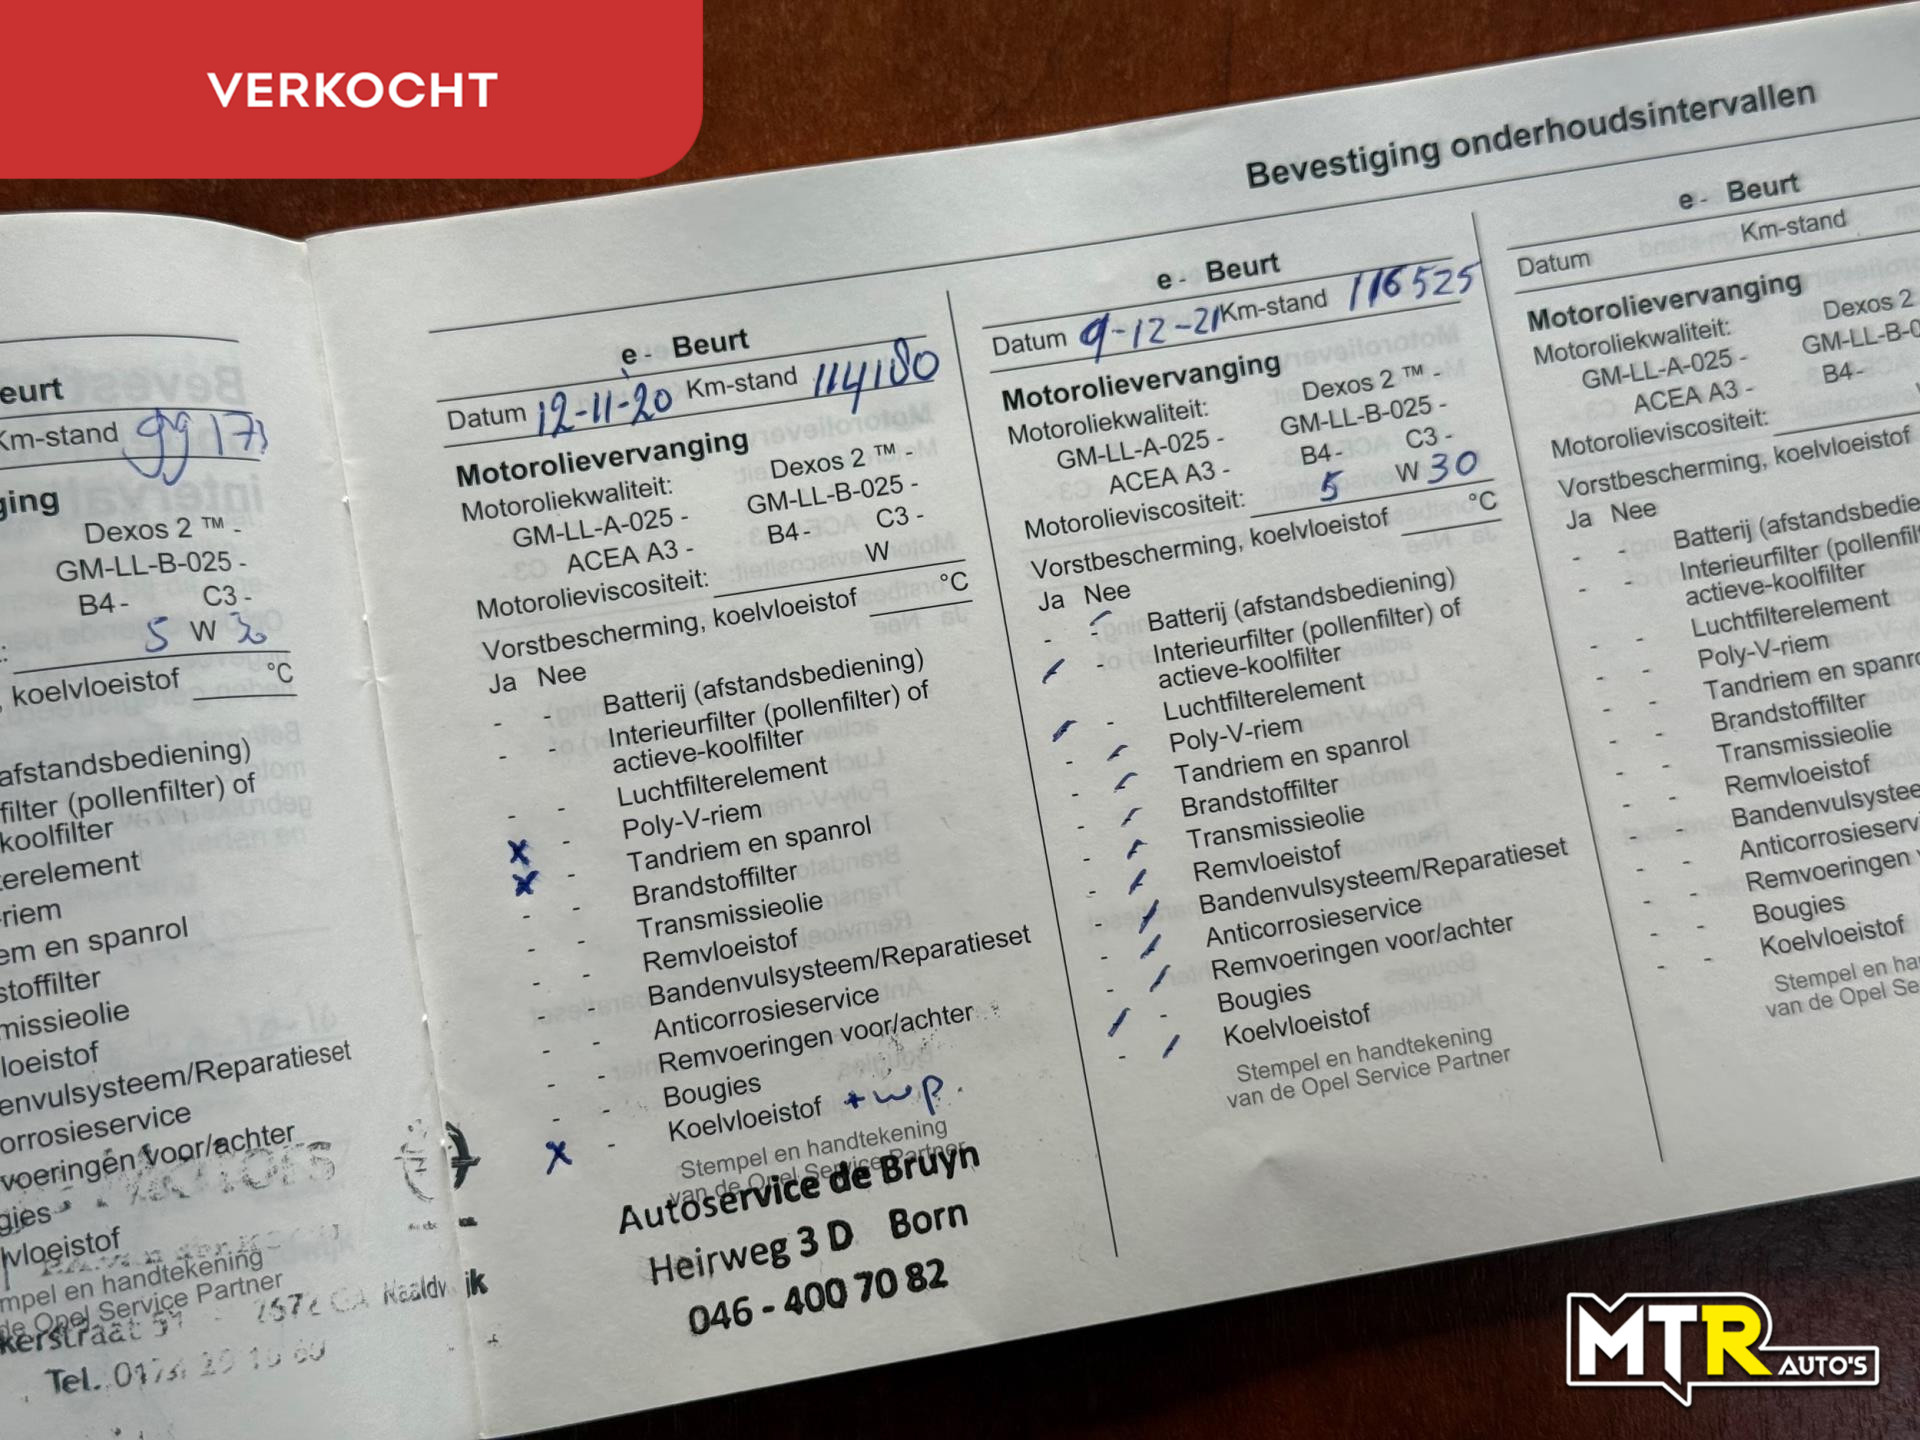 VERKOCHT
Bevestiging onderhoudsintervallen
eurt
Km-stand
ging
Dexos 2 ™ -
GM-LL-B-025 -
B4 - C3 -
: 5 W
, koelvloeistof °C
afstandsbediening)
filter (pollenfilter) of
koolfilter
terelement
-riem
em en spanrol
stoffilter
missieolie
loeistof
envulsysteem/Reparatieset
orrosieservice
voeringen voor/achter
gies
lvloeistof
mpel en handtekening
de Opel Service Partner
kerstraat 51
Tel.
e - Beurt
Datum 12-11-20 Km-stand 114180
Motorolievervanging
Motoroliekwaliteit: Dexos 2 ™ -
GM-LL-A-025 - GM-LL-B-025 -
ACEA A3 - B4 - C3 -
Motorolieviscositeit: W
Vorstbescherming, koelvloeistof °C
Ja Nee
- - Batterij (afstandsbediening)
- - Interieurfilter (pollenfilter) of
actieve-koolfilter
- - Luchtfilterelement
x - Poly-V-riem
x - Tandriem en spanrol
- - Brandstoffilter
- - Transmissieolie
- - Remvloeistof
- - Bandenvulsysteem/Reparatieset
- - Anticorrosieservice
- - Remvoeringen voor/achter
- - Bougies
x - Koelvloeistof + wp.
Stempel en handtekening
van de Opel Service Partner
Autoservice de Bruyn
Heirweg 3 D Born
046 - 400 70 82
e - Beurt
Datum 9-12-21 Km-stand 116525
Motorolievervanging
Motoroliekwaliteit: Dexos 2 ™ -
GM-LL-A-025 - GM-LL-B-025 -
ACEA A3 - B4 - C3 -
Motorolieviscositeit: 5 W 30
Vorstbescherming, koelvloeistof °C
Ja Nee
Batterij (afstandsbediening)
Interieurfilter (pollenfilter) of
actieve-koolfilter
Luchtfilterelement
Poly-V-riem
Tandriem en spanrol
Brandstoffilter
Transmissieolie
Remvloeistof
Bandenvulsysteem/Reparatieset
Anticorrosieservice
Remvoeringen voor/achter
Bougies
Koelvloeistof
Stempel en handtekening
van de Opel Service Partner
e - Beurt
Datum Km-stand
Motorolievervanging
Motoroliekwaliteit: Dexos 2
GM-LL-A-025 - GM-LL-B-0
ACEA A3 - B4 -
Motorolieviscositeit:
Vorstbescherming, koelvloeistof
Ja Nee
- - Batterij (afstandsbedie
- - Interieurfilter (pollenfil
actieve-koolfilter
- - Luchtfilterelement
- - Poly-V-riem
- - Tandriem en spanro
- - Brandstoffilter
- - Transmissieolie
- - Remvloeistof
- - Bandenvulsystee
- - Anticorrosieserv
- - Remvoeringen v
- - Bougies
- - Koelvloeistof
Stempel en ha
van de Opel Se
MTR AUTO'S